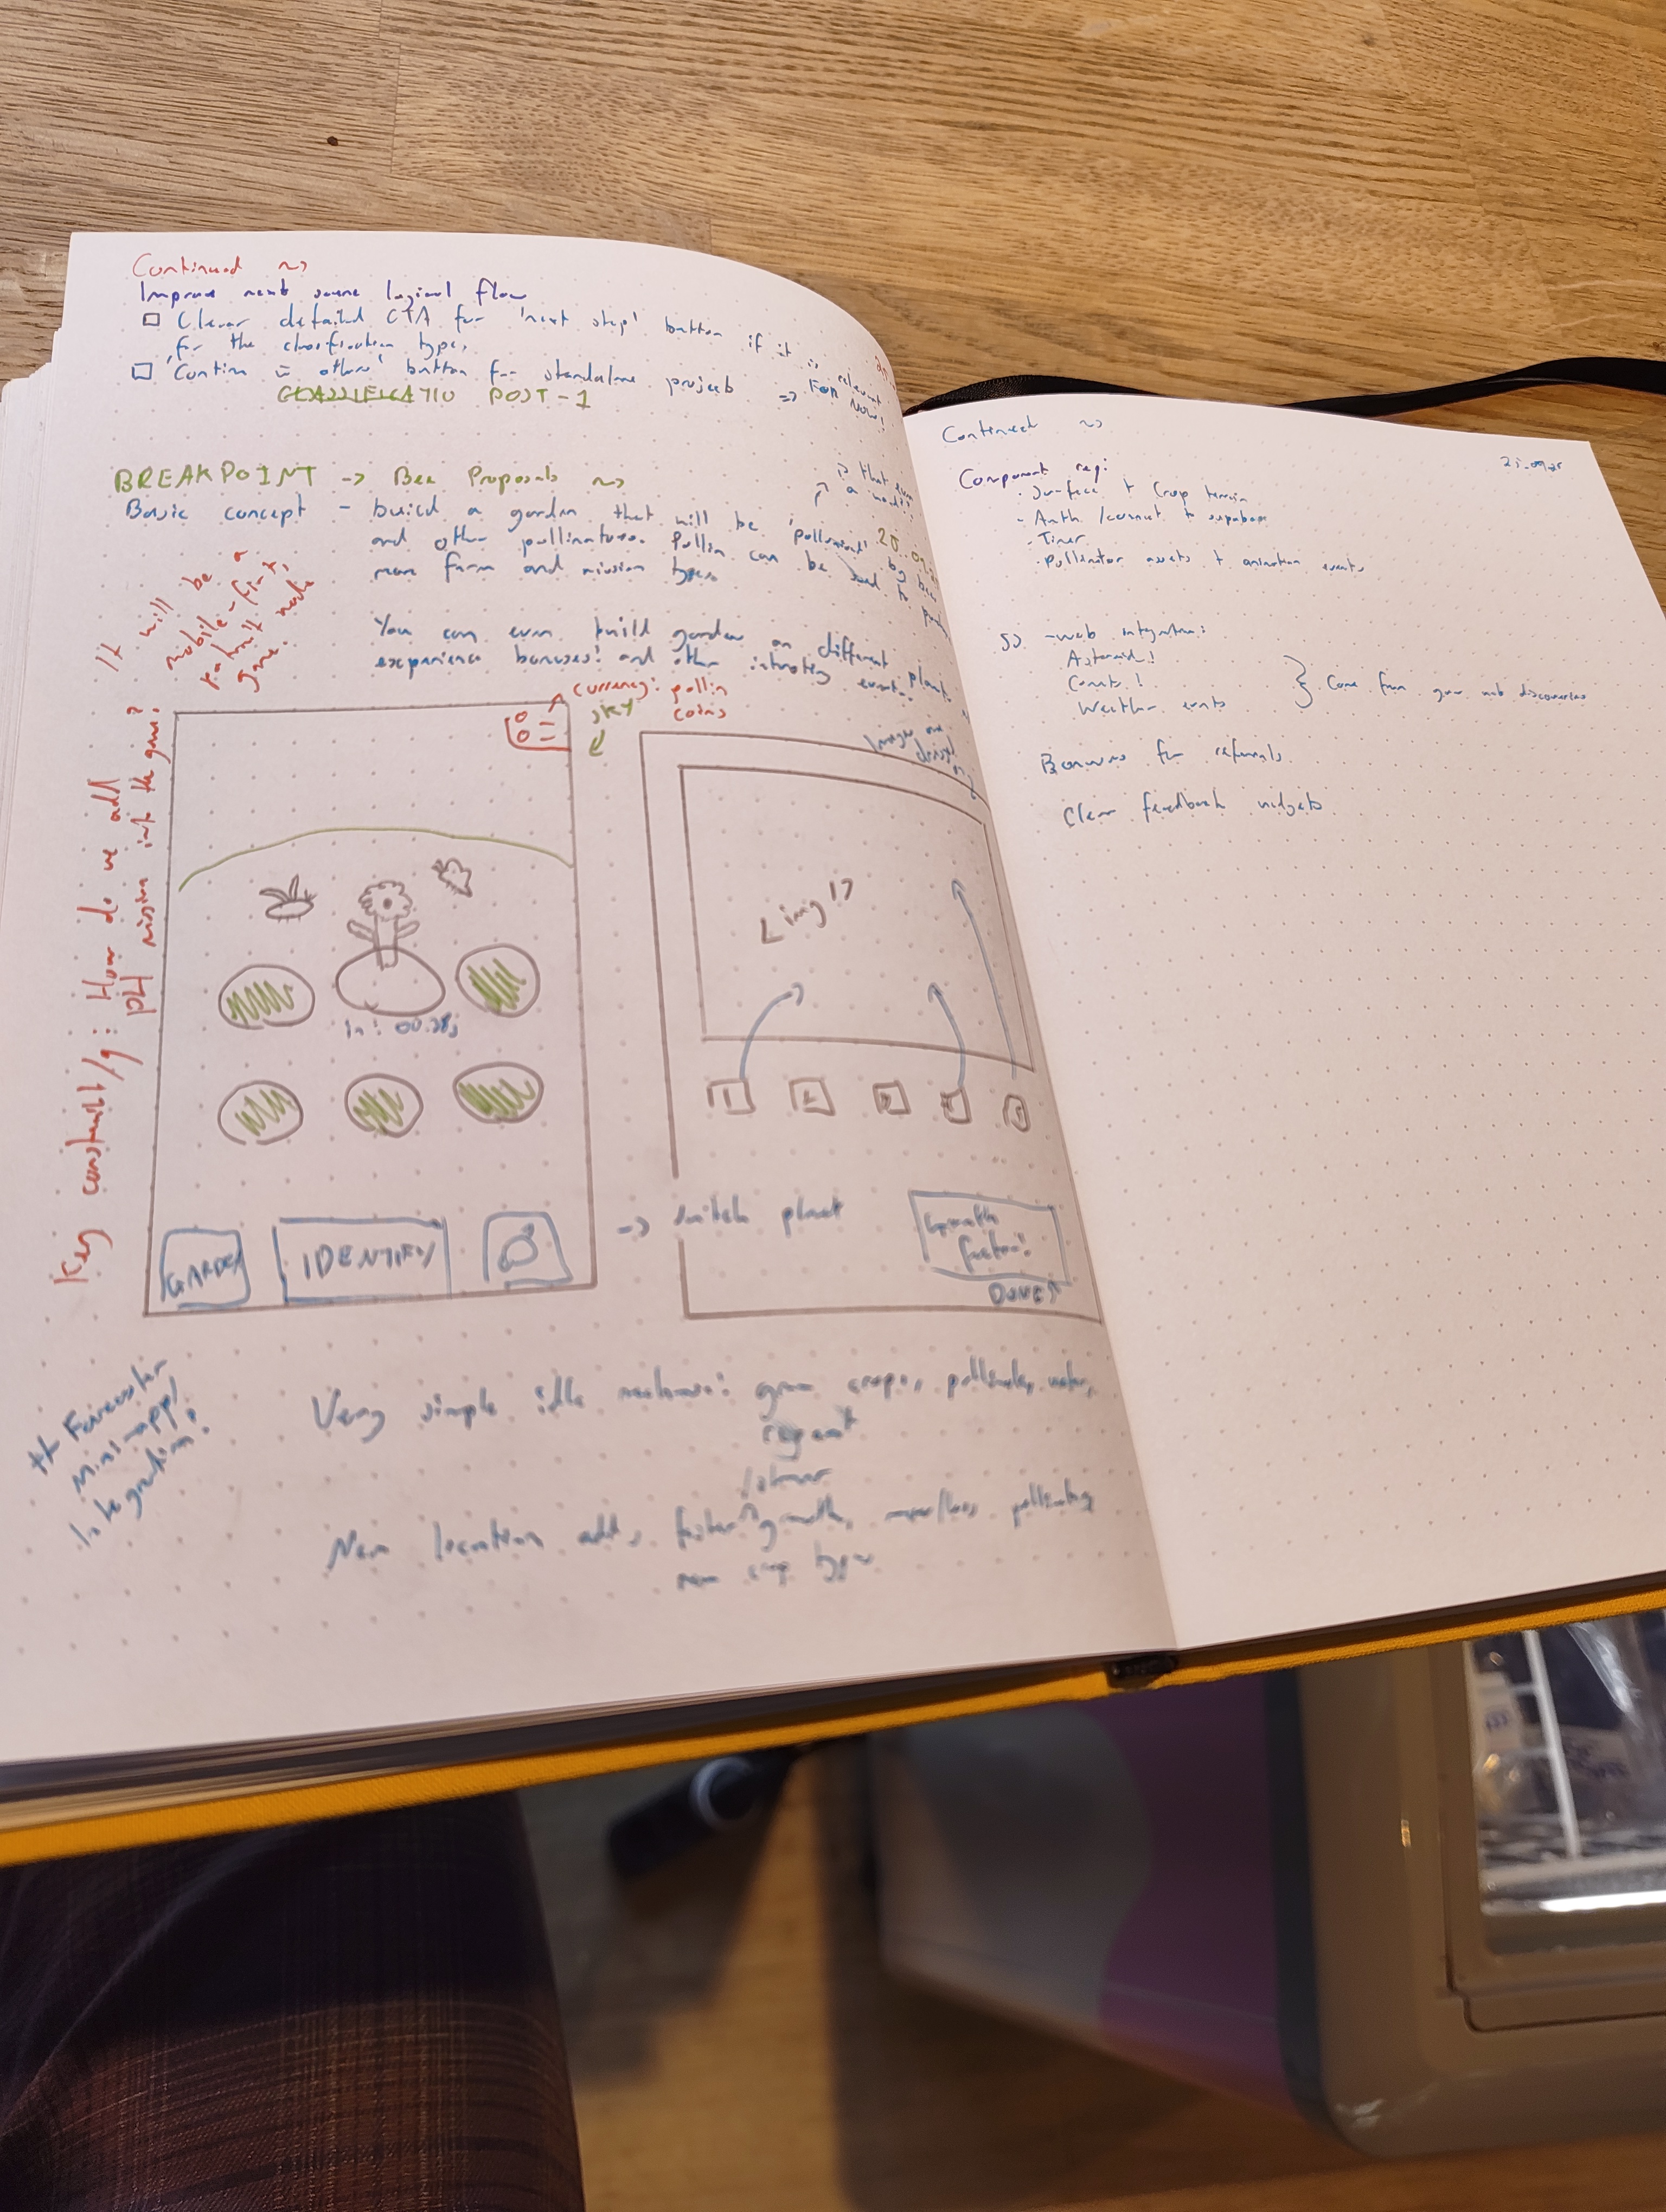 Continued ~>
Improve next scene logical flow
□ Clever detailed CTA for 'next step' button if it is relevant
for the classification types
□ 'Continue = other' button for standalone projects => FOR NOW!
CLASSIFICATIO POST-1
BREAKPOINT -> Bee Proposals ~>
Basic concept - build a garden that will be 'pollinated' by bees
and other pollinators. Pollin can be used to
more farm and mission types
It will be a
mobile-first,
game.
You can even build garden on different planets
experience bonuses! and other interesting events.
currency: pollin
coins
SKY
Key constraint/q: How do we add
pH mission into the game?
in: 00.28s
GARDEN
IDENTIFY
-> switch planet
Images are
<img1>
1
Growth
factor!
Very simple idle mechanic: grow crops, pollinate, water,
repeat
/slower
New location adds faster growth, more/less pollinating
new crop types
+ Farcaster
mini-app
integration!
Continued ~>
25.09.25
Component req:
- Surface + Crop terrain
- Auth /connect to supabase
- Timer
- Pollinator assets + animation events
-web integration:
Asteroid!
Comets!
Weather events
} Come from your web discoveries
Bonuses for referrals
Clear feedback widgets